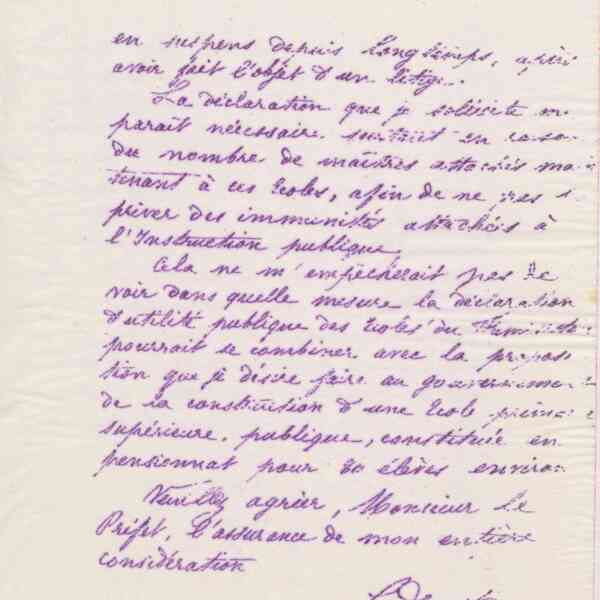 en suspens depuis longtemps, après
avoir fait l'objet d'un litige.
La déclaration que je sollicite me
paraît nécessaire surtout en raison
du nombre de maîtres attachés main
tenant à ces Ecoles, afin de ne pas
priver des immunités attachées à
l'Instruction publique
Cela ne m'empêcherait pas de
voir dans quelle mesure la déclaration
d'utilité publique des Ecoles du
pourrait se combiner avec la proposi
tion que je désire faire au gouvernement
de la constitution d'une Ecole primaire
supérieure, publique, constituée en
pensionnat pour 30 élèves environ
Veuillez agréer, Monsieur le
Préfet, l'assurance de mon entière
considération